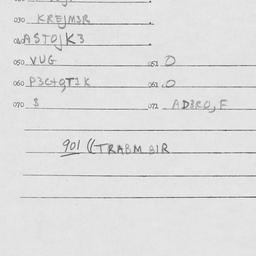 030 KREJM3R
040 ASTOJK3
050 VUG 051 O
060 P3C+9T1K 061 .O
070 $ 071 AD8RO,F
901 ((TRABM 81R